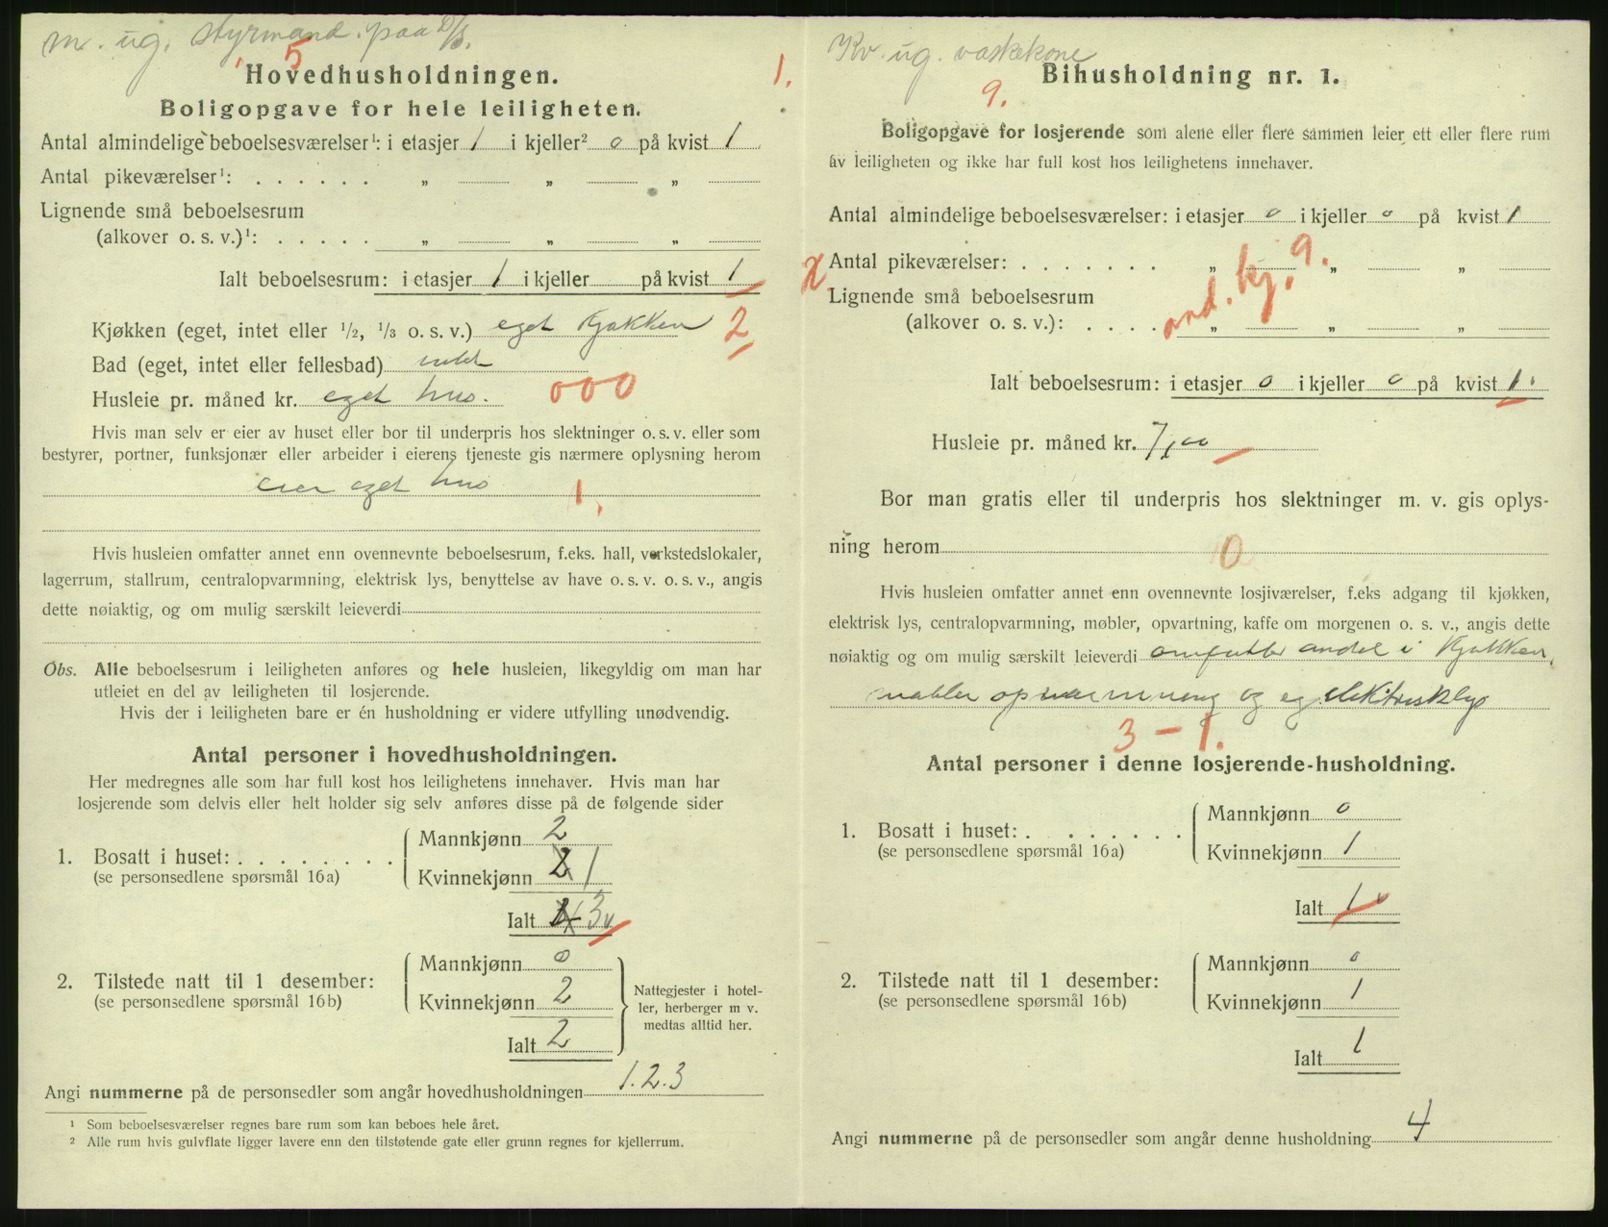 m. ug. styrmand paa D/S.
5
1.
Hovedhusholdningen.
Boligopgave for hele leiligheten.
Antal almindelige beboelsesværelser¹: i etasjer 1 i kjeller² 0 på kvist 1
Antal pikeværelser¹: . . . . . . „ „ „
Lignende små beboelsesrum
(alkover o. s. v.)¹: . . . . . „ „ „
Ialt beboelsesrum: i etasjer 1 i kjeller på kvist 1
Kjøkken (eget, intet eller 1/2, 1/3 o. s. v.) eget Kjøkken 2
Bad (eget, intet eller fellesbad)
Husleie pr. måned kr. eget hus. 000
Hvis man selv er eier av huset eller bor til underpris hos slektninger o. s. v. eller som
bestyrer, portner, funksjonær eller arbeider i eierens tjeneste gis nærmere oplysning herom
eier eget hus 1.
Hvis husleien omfatter annet enn ovennevnte beboelsesrum, f.eks. hall, verkstedslokaler,
lagerrum, stallrum, centralopvarmning, elektrisk lys, benyttelse av have o. s. v. o. s. v., angis
dette nøiaktig, og om mulig særskilt leieverdi
Obs. Alle beboelsesrum i leiligheten anføres og hele husleien, likegyldig om man har
utleiet en del av leiligheten til losjerende.
Hvis der i leiligheten bare er én husholdning er videre utfylling unødvendig.
Antal personer i hovedhusholdningen.
Her medregnes alle som har full kost hos leilighetens innehaver. Hvis man har
losjerende som delvis eller helt holder sig selv anføres disse på de følgende sider
Mannkjønn 2
1. Bosatt i huset: . . . . . . . .
(se personsedlene spørsmål 16a)
Kvinnekjønn 2 1
Ialt 4 3
Mannkjønn 0
2. Tilstede natt til 1 desember:
(se personsedlene spørsmål 16b)
Kvinnekjønn 2
Ialt 2
Nattegjester i hotel-
ler, herberger m v.
medtas alltid her.
Angi nummerne på de personsedler som angår hovedhusholdningen 1.2.3
¹ Som beboelsesværelser regnes bare rum som kan beboes hele året.
² Alle rum hvis gulvflate ligger lavere enn den tilstøtende gate eller grunn regnes for kjellerrum.
Kv. ug. vaskekone
9.
Bihusholdning nr. 1.
Boligopgave for losjerende som alene eller flere sammen leier ett eller flere rum
av leiligheten og ikke har full kost hos leilighetens innehaver.
Antal almindelige beboelsesværelser: i etasjer 0 i kjeller 0 på kvist 1
X Antal pikeværelser: . . . . . . . „ „ „
and. kj. 9.
Lignende små beboelsesrum
(alkover o. s. v.): . . . . „ „ „
Ialt beboelsesrum: i etasjer 0 i kjeller 0 på kvist 1
Husleie pr. måned kr. 7,00
Bor man gratis eller til underpris hos slektninger m. v. gis oplys-
ning herom 0
Hvis husleien omfatter annet enn ovennevnte losjiværelser, f.eks adgang til kjøkken,
elektrisk lys, centralopvarmning, møbler, opvartning, kaffe om morgenen o. s. v., angis dette
nøiaktig og om mulig særskilt leieverdi omfatter andel i Kjøkken,
møbler opvarmning og elektrisklys
3 - 1.
Antal personer i denne losjerende-husholdning.
Mannkjønn 0
1. Bosatt i huset: . . . . . . .
(se personsedlene spørsmål 16a)
Kvinnekjønn 1
Ialt 1
Mannkjønn 0
2. Tilstede natt til 1 desember:
(se personsedlene spørsmål 16b)
Kvinnekjønn 1
Ialt 1
Angi nummerne på de personsedler som angår denne husholdning 4